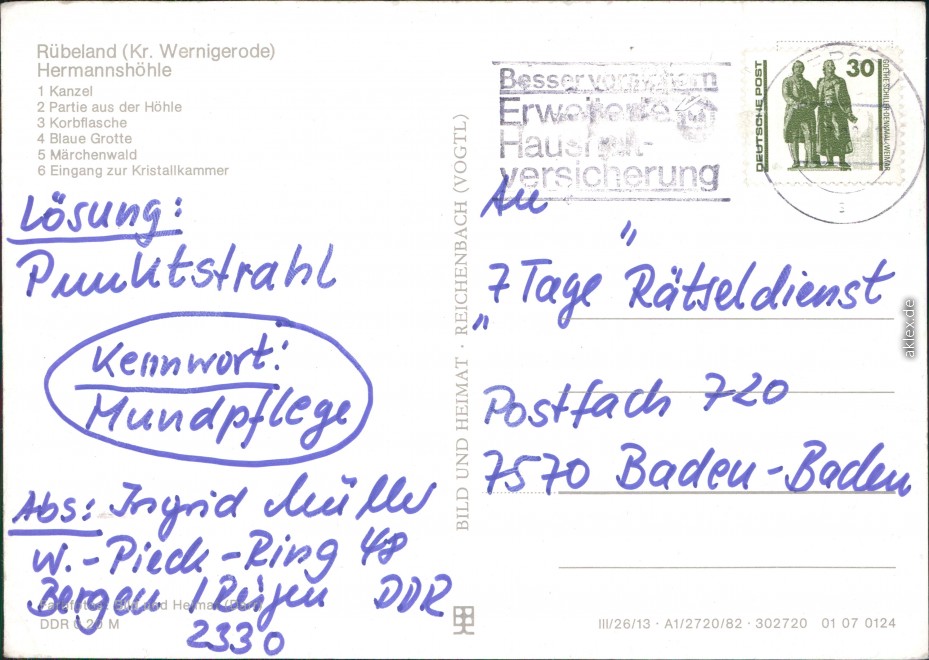 Rübeland (Kr. Wernigerode)
Hermannshöhle
1 Kanzel
2 Partie aus der Höhle
3 Korbflasche
4 Blaue Grotte
5 Märchenwald
6 Eingang zur Kristallkammer
Lösung:
Punktstrahl
Kennwort:
Mundpflege
Abs: Ingrid Müller
W.-Pieck-Ring 48
Bergen / Rügen DDR
2330
Bild und Heimat
DDR 0,20 M
BILD UND HEIMAT · REICHENBACH (VOGTL)
Besser vorsichern
Erweiterte
Haushalt-
versicherung
DEUTSCHE POST
30
GOETHE-SCHILLER-DENKMAL/WEIMAR
An
"7 Tage Rätseldienst"
Postfach 720
7570 Baden-Baden
III/26/13 · A1/2720/82 · 302720 01 07 0124
aklex.de